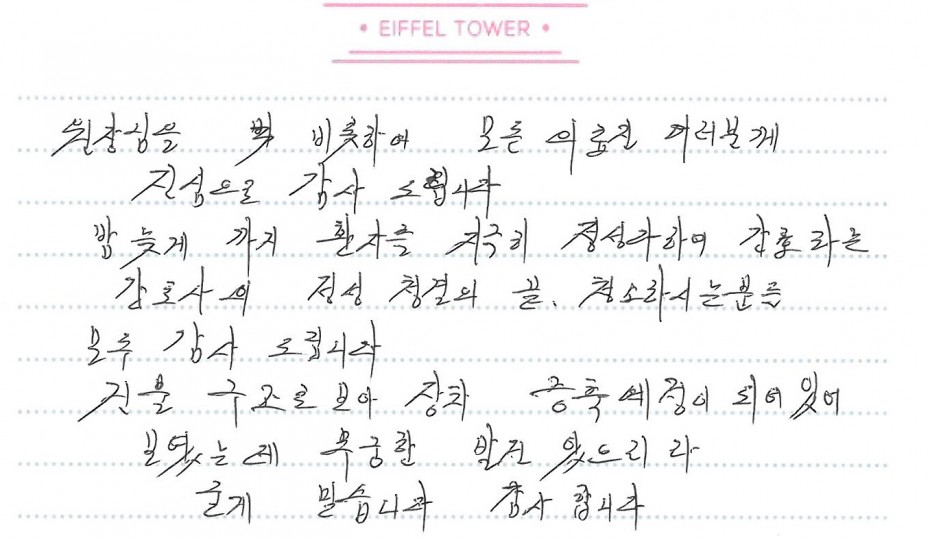 • EIFFEL TOWER •
원장님을 비롯하여 모든 의료진 여러분께
진심으로 감사 드립니다
밤 늦게 까지 환자를 지극히 정성다하여 간호 하는
간호사의 정성 청결의 끝. 청소하시는분들
모두 감사 드립니다
건물 구조로 보아 장차 증축예정이 되어있어
보였는데 무궁한 발전 있으리 라
굳게 믿습니다 감사 합니다